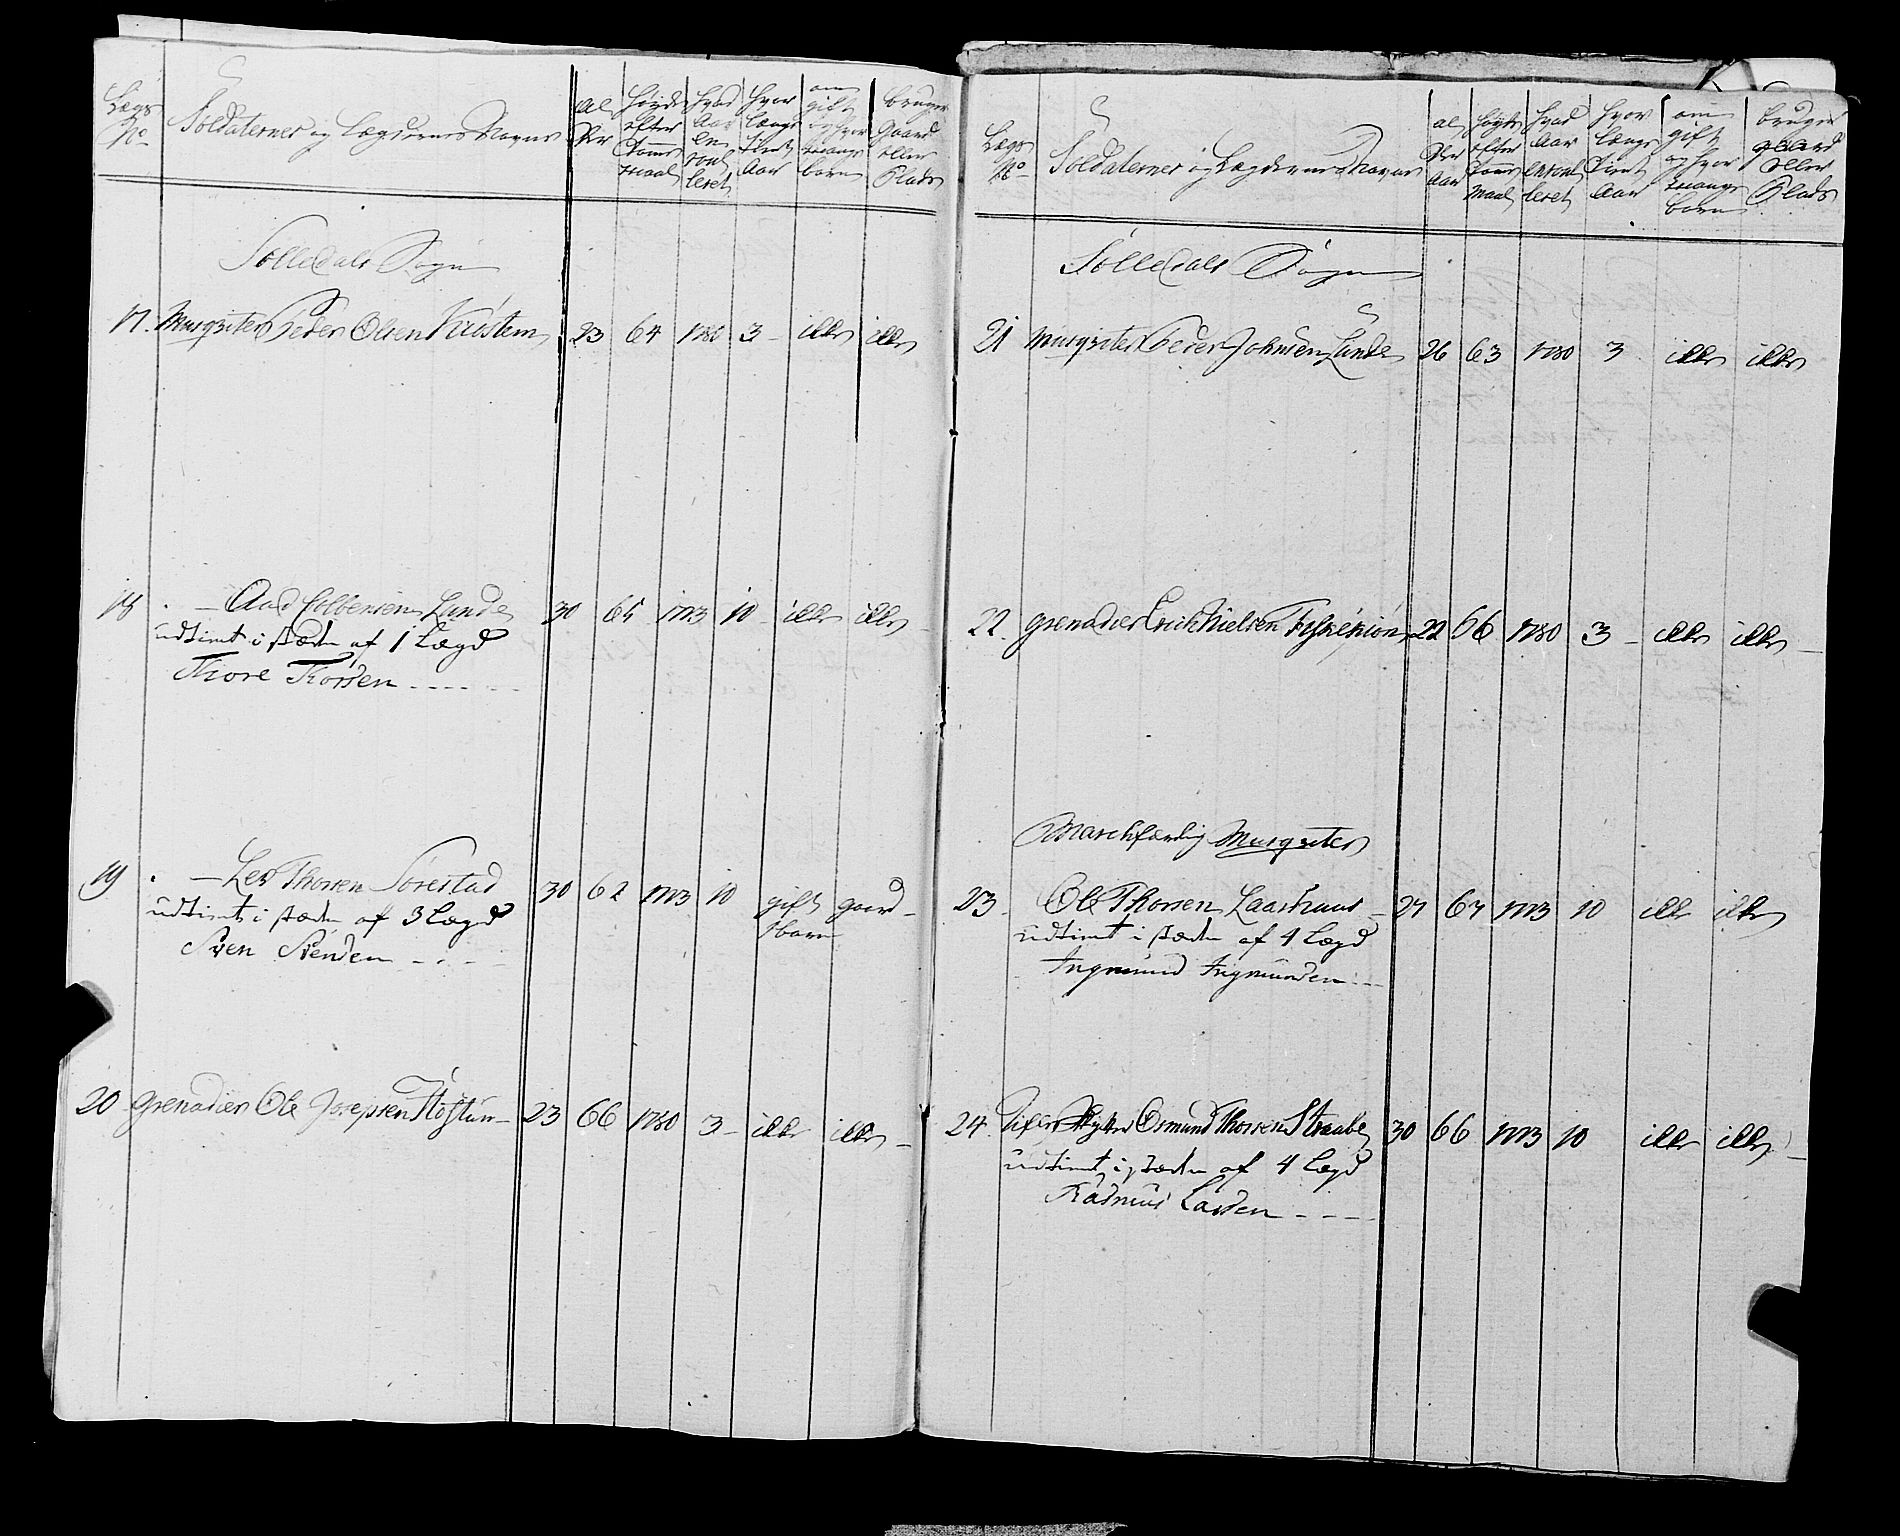 Lægs No Soldaternes og Lægdernes Navne al der høyde efter Tomme maal hvad Aar en roul leret hvor længe tient Aar om gift og hvor mange børn bruger Gaard eller Plads
Solledals Sogn
17. Musqueter Peder Olsen 23 64 1780 3 - ikke ikke
18 . - Aad Colbensen Lunde 30 65 1773 10 - ikke ikke
udtient i stæden af 1 Lægd
Thore Thorsen - - - - -
19 . - Lev Thorsen Sørestad 30 62 1773 10 gift gaard -
udtient i stæden af 3 Lægd 1 barn
Sven Svendsen - - - -
20 Grenadier Ole Josepsen 23 66 1780 3 - ikke ikke -
Lægs No Soldaternes og Lægdernes Navne al der Aar høyde efter Tomme Maal hvad Aar enroul leret hvor længe tient Aar om gift og hvor mange børn bruger gaard eller Plads
Solledals Sogn
21 Musqueter Peder Johnsen Lunde 26 63 1780 3 ikke ikke
22. Grenadier Erich Nielsen 22 66 1780 3 - ikke ikke -
Marchfærdig Musqueter
23 - Ole Thorsen Laashuus - 27 67 1773 10 ikke ikke
udtient i stæden af 4 Lægd
Ingmund Ingmundsen - - -
24. Osmund Thorsen Straabe 30 66 1773 10 ikke ikke -
udtient i stæden af 4 Lægd
Rasmus Larsen - - - -